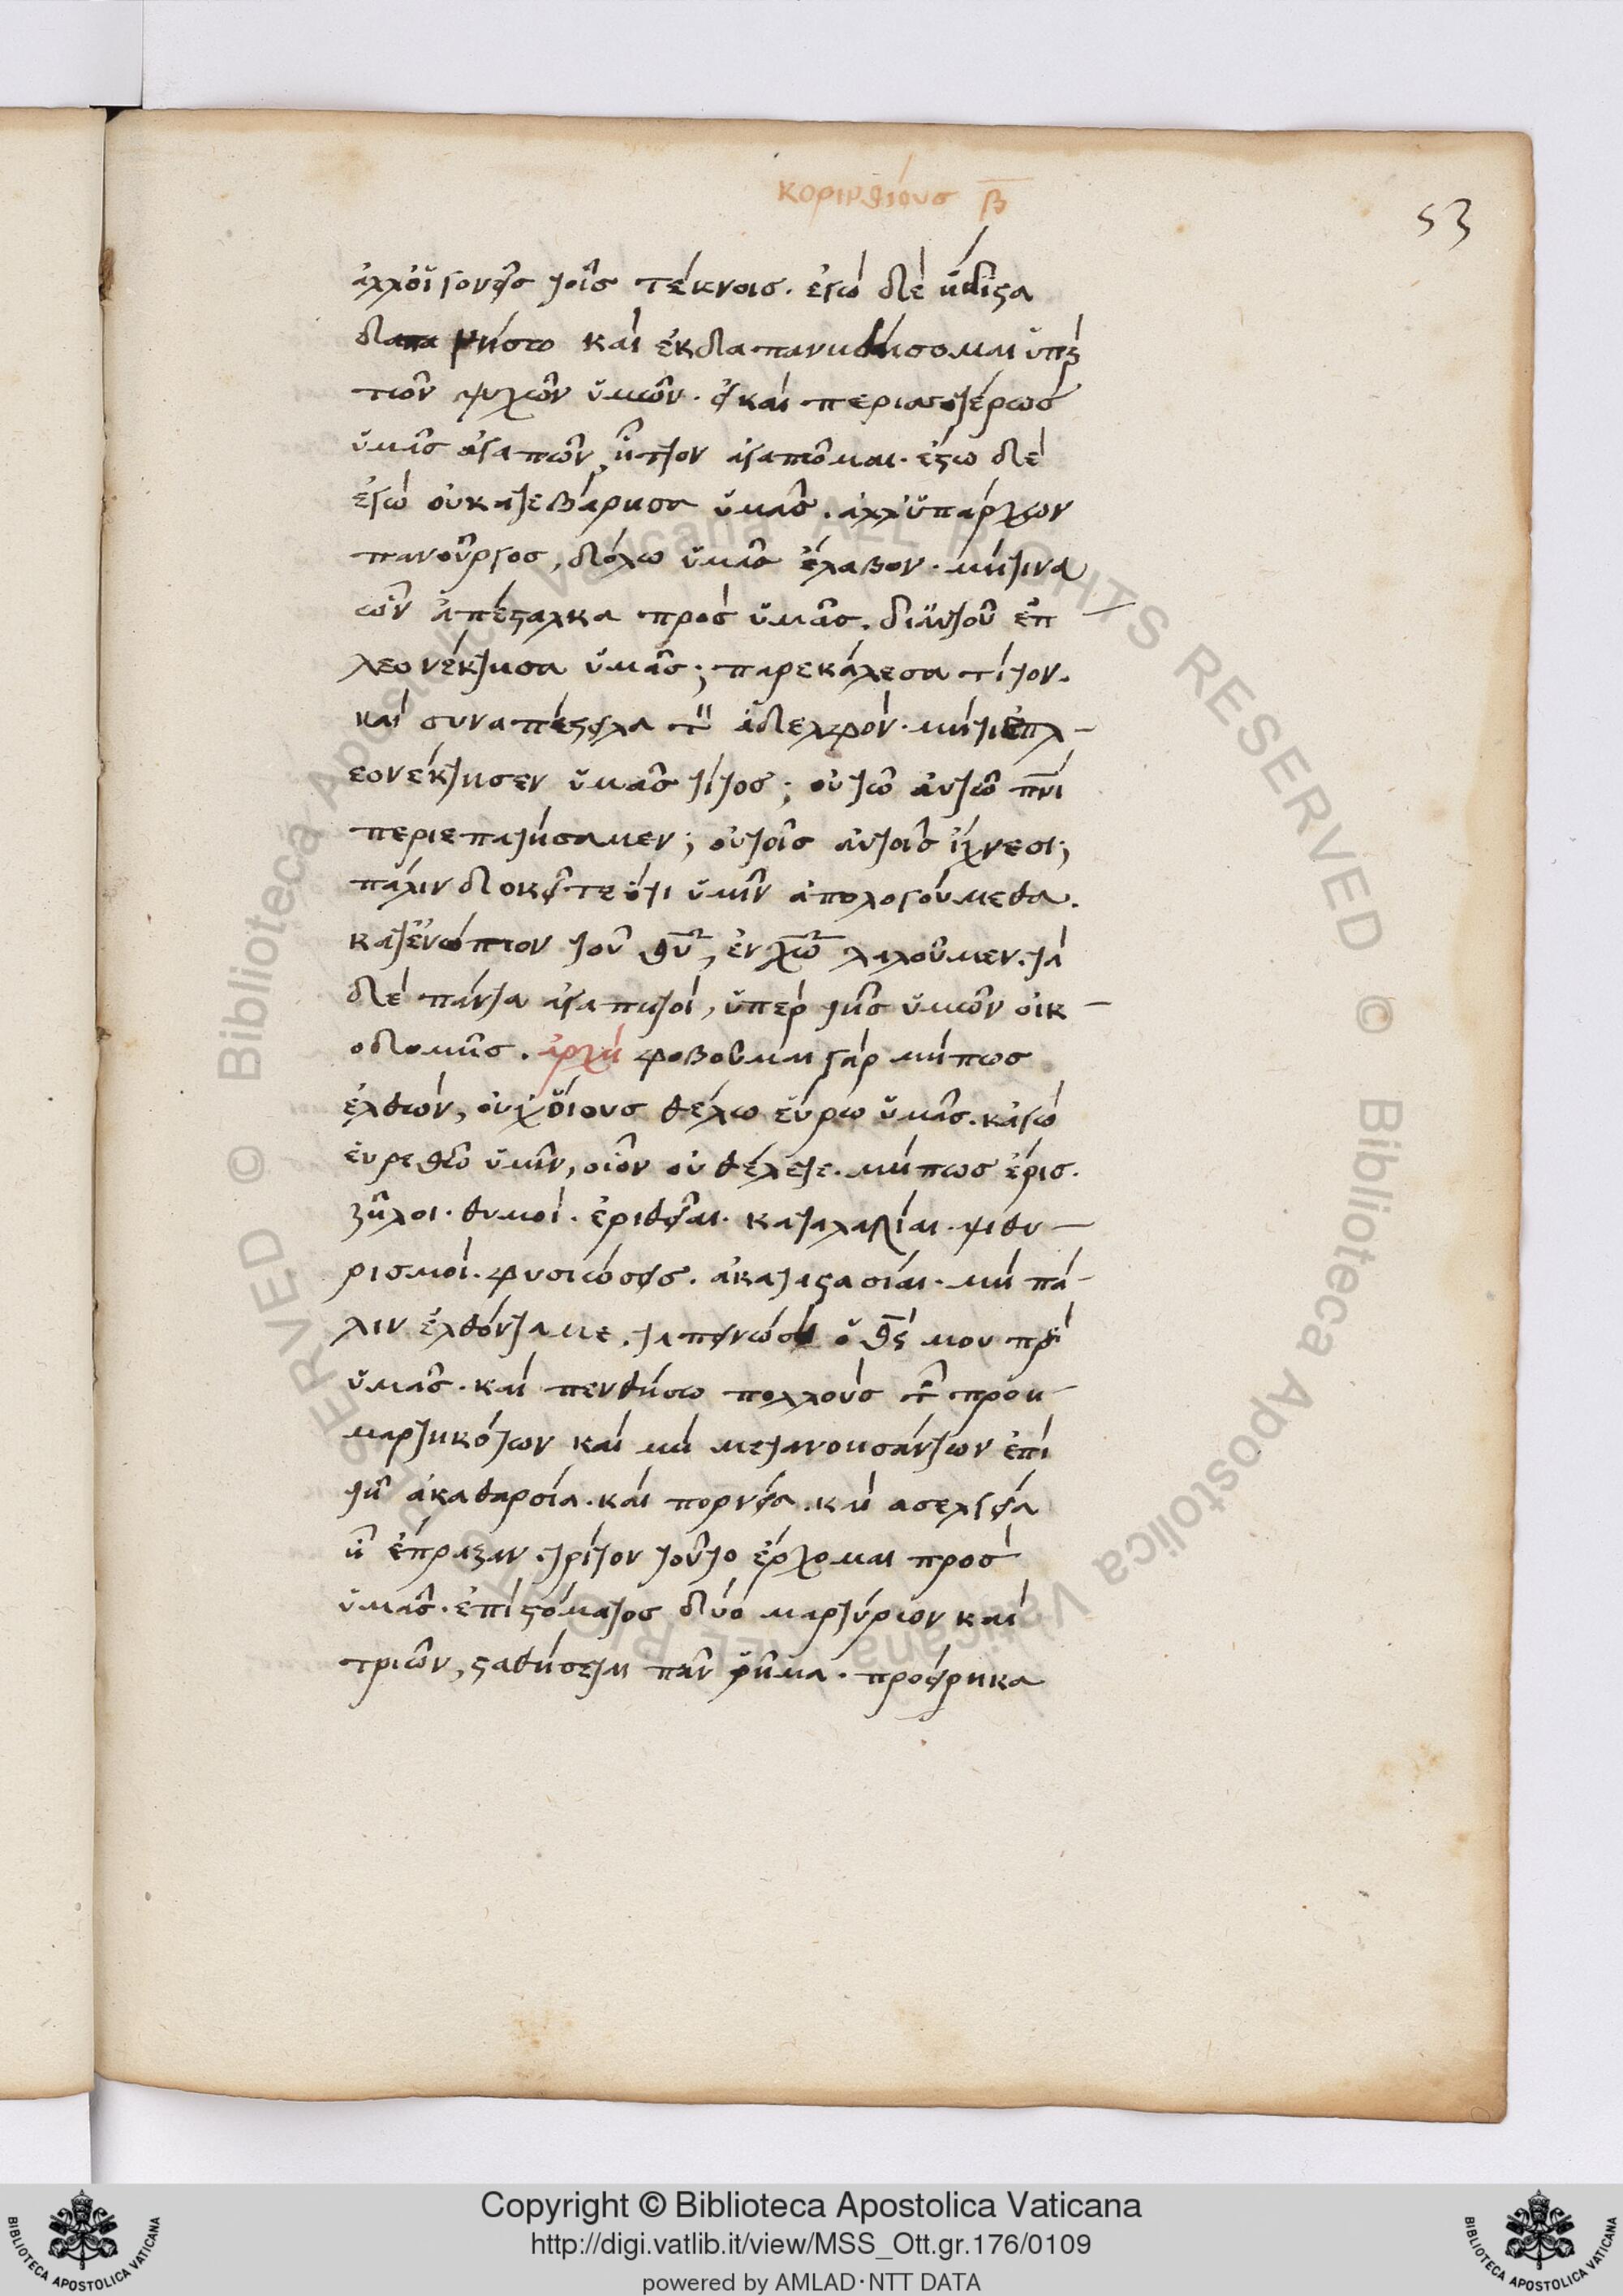 κορινθίους β
53
ἀλλ' οἱ γονεῖς τοῖς τέκνοις. ἐγὼ δὲ ἥδιστα
δαπανήσω καὶ ἐκδαπανηθήσομαι ὑπερ
τῶν ψυχῶν ὑμῶν. εἰ καὶ περισσοτέρως
ὑμᾶς ἀγαπῶν, ἧττον ἀγαπῶμαι. ἔστω δὲ
ἐγὼ οὐ κατεβάρησα ὑμᾶς. ἀλλ' ὑπάρχων
πανοῦργος, δόλω ὑμᾶς ἔλαβον. μή τινα
ὧν ἀπέσταλκα πρὸς ὑμᾶς. δι' αὐτοῦ ἐπ
λεονέκτησα ὑμᾶς; παρεκάλεσα τίτον.
καὶ συναπέστειλα τὸν ἀδελφόν. μήτι ἐπλ-
εονέκτησεν ὑμᾶς τίτος; οὐ τῶ αὐτῶ πνι
περιεπατήσαμεν; οὐ τοῖς αὐτοῖς ἴχνεσι;
πάλιν δοκεῖτε ὅτι ὑμῖν ἀπολογούμεθα.
κατενώπιον τοῦ θυ, ἐν χω λαλοῦμεν. τὰ
δὲ πάντα ἀγαπητοὶ, ὑπὲρ τῆς ὑμῶν οἰκ-
οδομῆς. ἀρχὴ φοβοῦμαι γὰρ μήπως
ἐλθὼν, οὐχ οἵους θέλω εὕρω ὑμᾶς. κἀγὼ
εὑρεθῶ ὑμῖν, οἷον οὐ θέλετε. μήπως ἔρις.
ζῆλοι. θυμοὶ. ἐριθεῖαι. καταλαλίαι. ψιθυ-
ρισμοὶ. φυσιώσεις. ἀκαταστασίαι. μὴ πά-
λιν ἐλθόντα με. ταπεινώσει ὁ θς μου πρὸς
ὑμᾶς. καὶ πενθήσω πολλοὺς τῶν προη-
μαρτηκότων καὶ μὴ μετανοησάντων ἐπὶ
τῆ ἀκαθαρσία. καὶ πορνεία. καὶ ασελγεία
ἧ ἔπραξαν. τρίτον τοῦτο ἔρχομαι πρὸς
ὑμᾶς. ἐπὶ στόματος δύο μαρτύρων καὶ
τριῶν, σταθήσεται πᾶν ῥῆμα. προείρηκα
Copyright © Biblioteca Apostolica Vaticana
http://digi.vatlib.it/view/MSS_Ott.gr.176/0109
powered by AMLAD·NTT DATA